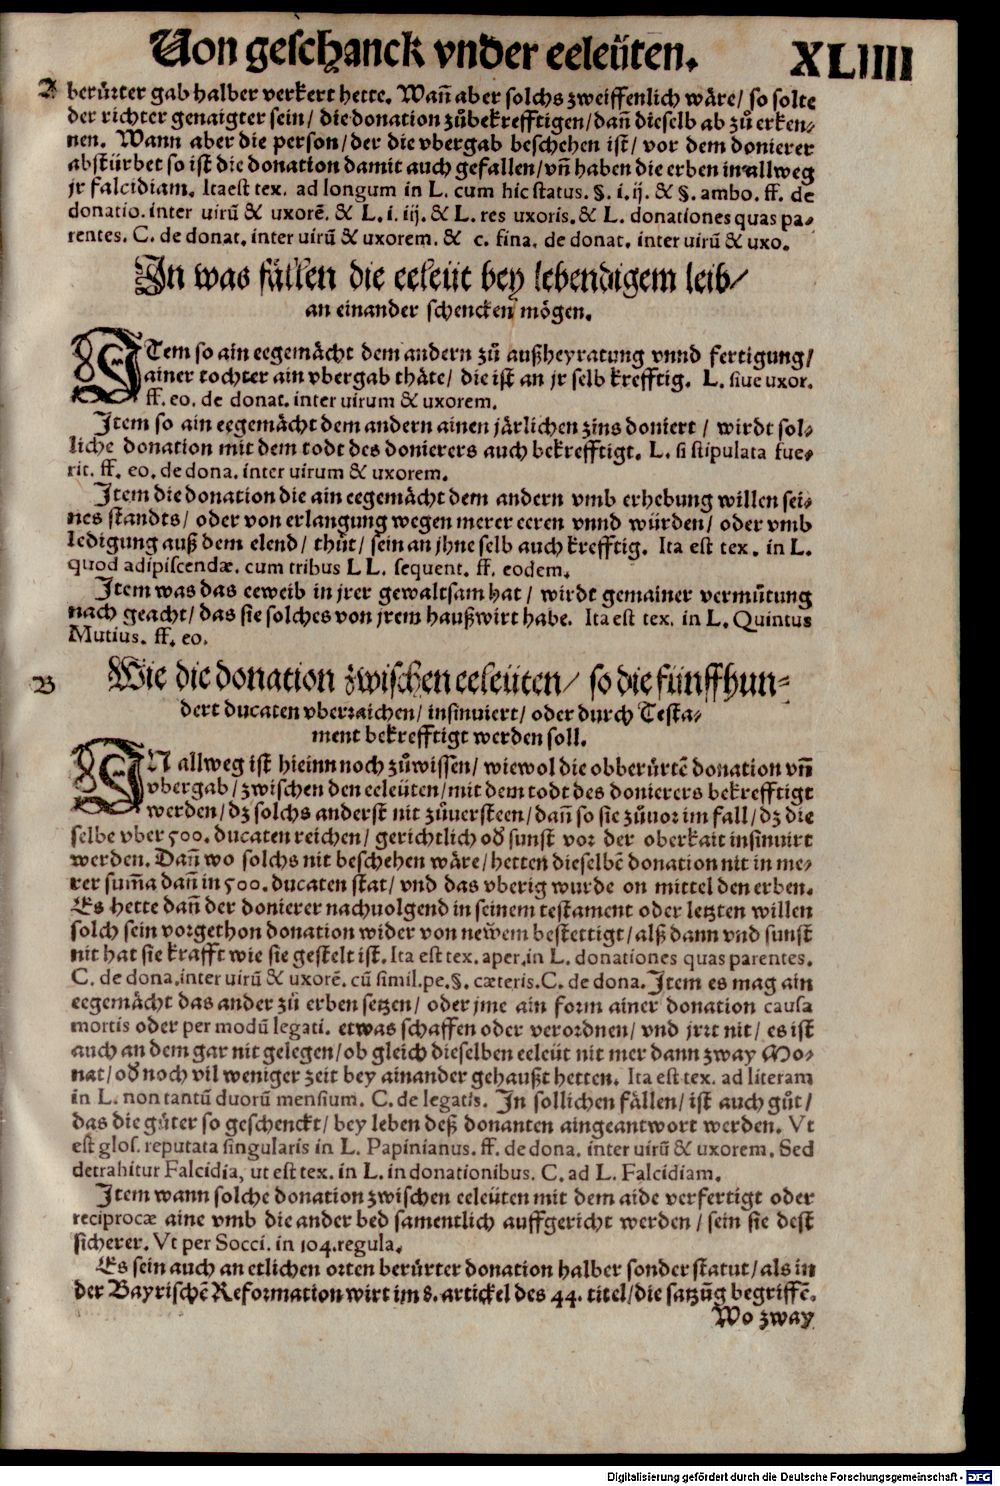 Von geschanck vnder eeleüten. XLIIII
A berürter gab halber verkert hette. Wañ aber solchs zweiffenlich wäre/ so solte
der richter genaigter sein/ die donation zůbekrefftigen/ dañ dieselb ab zů erken-
nen. Wann aber die person/ der die vbergab beschehen ist/ vor dem donierer
abstürbet so ist die donation damit auch gefallen/ vñ haben die erben in allweg
jr falcidiam. Ita est tex. ad longum in L. cum hic status. §. i. ij. & §. ambo. ff. de
donatio. inter uirū & uxorē. & L. i. iij. & L. res uxoris. & L. donationes quas pa-
rentes. C. de donat. inter uirū & uxorem. & c. fina. de donat. inter uirū & uxo.
In was fällen die eeleüt bey lebendigem leib/
an einander schencken mögen.
ITem so ain eegemächt dem andern zů außheyratung vnnd fertigung/
ainer tochter ain vbergab thäte/ die ist an jr selb krefftig. L. siue uxor.
ff. eo. de donat. inter uirum & uxorem.
Item so ain eegemächt dem andern ainen järlichen zins doniert/ wirdt sol-
liche donation mit dem todt des donierers auch bekrefftigt. L. si stipulata fue-
rit. ff. eo. de dona. inter uirum & uxorem.
Item die donation die ain eegemächt dem andern vmb erhebung willen sei-
nes standts/ oder von erlangung wegen merer eeren vnnd würden/ oder vmb
ledigung auß dem elend/ thůt/ sein an jhne selb auch krefftig. Ita est tex. in L.
quod adipiscendæ. cum tribus L L. sequent. ff. eodem.
Item was das eeweib in jrer gewaltsam hat/ wirdt gemainer vermůtung
nach geacht/ das sie solches von jrem haußwirt habe. Ita est tex. in L. Quintus
Mutius. ff. eo.
B Wie die donation zwischen eeleüten/ so die fünffhun-
dert ducaten vberraichen/ insinuiert/ oder durch Testa-
ment bekrefftigt werden soll.
IN allweg ist hieinn noch zůwissen/ wiewol die obberürtē donation vñ
vbergab/ zwischen den eeleüten/ mit dem todt des donierers bekrefftigt
werden/ dz solchs anderst nit zůuersteen/ dañ so sie zůuor im fall/ dz die
selbe vber 500. ducaten reichen/ gerichtlich od sunst vor der oberkait insinuirt
werden. Dañ wo solchs nit beschehen wäre/ hetten dieselbē donation nit in me-
rer sum̄a dañ in 500. ducaten stat/ vnd das vberig wurde on mittel den erben.
Es hette dañ der donierer nachuolgend in seinem testament oder letzten willen
solch sein vorgethon donation wider von newem bestettigt/ alß dann vnd sunst
nit hat sie krafft wie sie gestelt ist. Ita est tex. aper. in L. donationes quas parentes.
C. de dona. inter uirū & uxorē. cū simil. pe. §. cæteris. C. de dona. Item es mag ain
eegemächt das ander zů erben setzen/ oder jme ain form ainer donation causa
mortis oder per modū legati. etwas schaffen oder verordnen/ vnd jrrt nit/ es ist
auch an dem gar nit gelegen/ ob gleich dieselben eeleüt nit mer dann zway Mo-
nat/ od noch vil weniger zeit bey ainander gehaußt hetten. Ita est tex. ad literam
in L. non tantū duorū mensium. C. de legatis. In sollichen fällen/ ist auch gůt/
das die güter so geschenckt/ bey leben deß donanten aingeantwort werden. Vt
est glos. reputata singularis in L. Papinianus. ff. de dona. inter uirū & uxorem. Sed
detrahitur Falcidia, ut est tex. in L. in donationibus. C. ad L. Falcidiam.
Item wann solche donation zwischen eeleüten mit dem aide verfertigt oder
reciprocæ aine vmb die ander bed samentlich auffgericht werden/ sein sie dest
sicherer. Vt per Socci. in 104. regula.
Es sein auch an etlichen orten berürter donation halber sonder statut/ als in
der Bayrischē Reformation wirt im 8. artickel des 44. titel/ die satzūg begriffē.
Wo zway
Digitalisierung gefördert durch die Deutsche Forschungsgemeinschaft - DFG